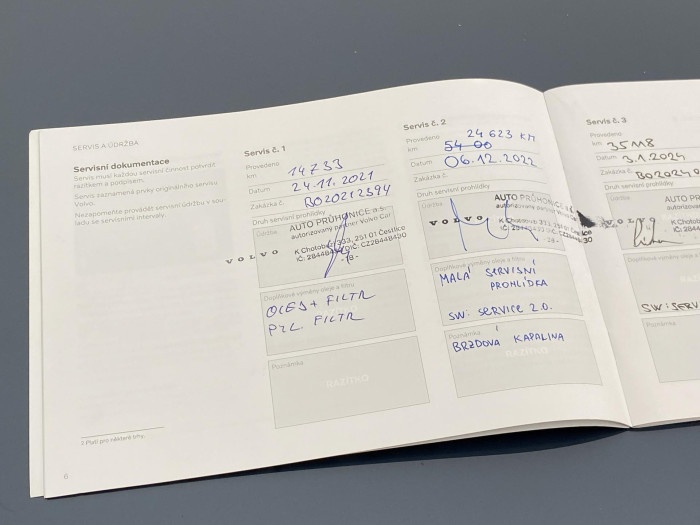 SERVIS A ÚDRŽBA
Servisní dokumentace
Servis musí každou servisní činnost potvrdit
razítkem a podpisem.
Servis zaznamená prvky originálního servisu
Volvo.
Nezapomeňte provádět servisní údržbu v sou-
ladu se servisními intervaly.
3 Platí pro některé trhy.
6
Servis č. 1
Provedeno
km 14733
Datum 24.11.2021
Zakázka č. BO20212394
Druh servisní prohlídky
Údržba
AUTO PRŮHONICE a.s.
autorizovaný partner Volvo Car
VOLVO
K Chotobuzi 333, 251 01 Čestlice
- 18 -
Doplňkové výměny oleje a filtru
OLEJ + FILTR
PYL. FILTR
Poznámka
RAZÍTKO
Servis č. 2
Provedeno 24 623 KM
km
Datum 06.12.2022
Zakázka č.
Druh servisní prohlídky
Údržba
AUTO PRŮHONICE
autorizovaný partner Volvo
VOLVO
Doplňkové výměny oleje a filtru
MALÁ SERVISNÍ
PROHLÍDKA
SW: SERVICE 2.0.
Poznámka
BRZDOVÁ KAPALINA
RAZÍTKO
Servis č. 3
Provedeno
km 35118
Datum 3.1.2024
Zakázka č. BO20240
Druh servisní prohlídky
Údržba
AUTO P
autorizova
VOLVO
K Chotob
IČ: 2844
Doplňkové výměny
SW: SERV
Poznámka